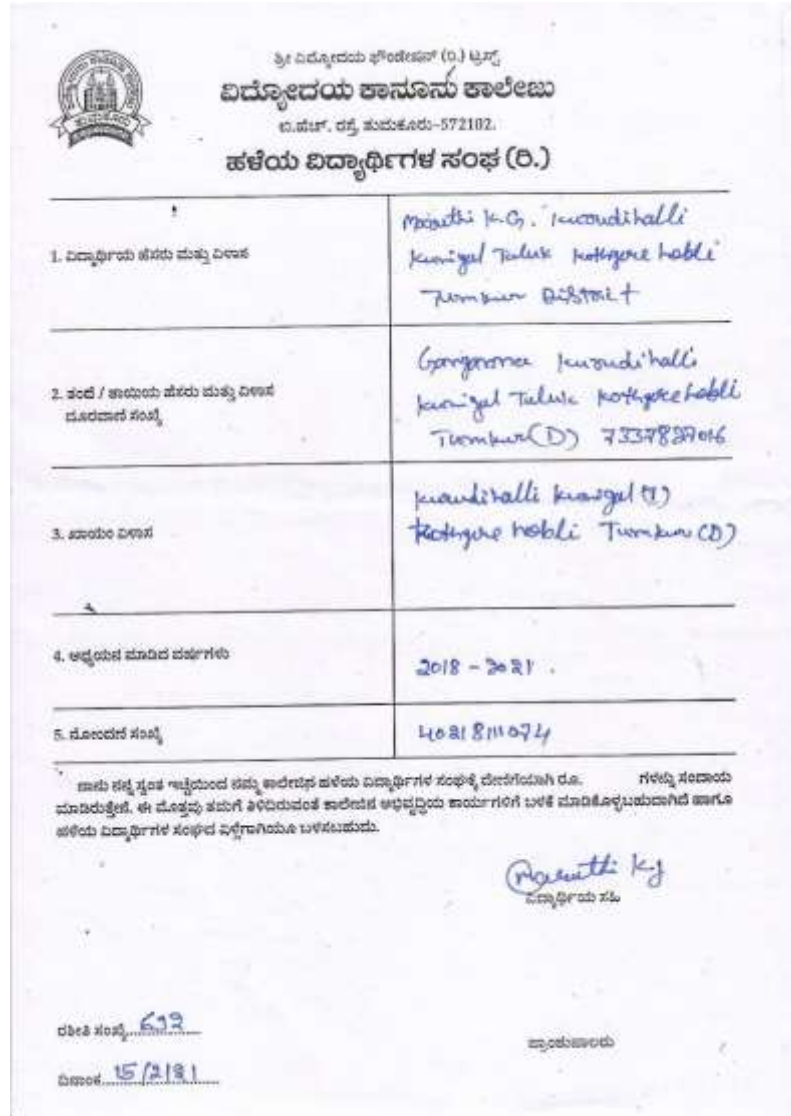 ಶ್ರೀ ವಿದ್ಯೋದಯ ಫೌಂಡೇಷನ್ (ರಿ.) ಟ್ರಸ್ಟ್
ವಿದ್ಯೋದಯ ಕಾನೂನು ಕಾಲೇಜು
ಬಿ.ಹೆಚ್. ರಸ್ತೆ, ತುಮಕೂರು-572102.
ಹಳೆಯ ವಿದ್ಯಾರ್ಥಿಗಳ ಸಂಘ (ರಿ.)
1. ವಿದ್ಯಾರ್ಥಿಯ ಹೆಸರು ಮತ್ತು ವಿಳಾಸ
Maruthi K.G. Kurudihalli
Kunigal Taluk Kothgere hobli
Tumkur District
2. ತಂದೆ / ತಾಯಿಯ ಹೆಸರು ಮತ್ತು ವಿಳಾಸ
ದೂರವಾಣಿ ಸಂಖ್ಯೆ
Kurudihalli
Kunigal Taluk Kothgere hobli
Tumkur (D) 7337827016
3. ಖಾಯಂ ವಿಳಾಸ
Kurudihalli Kunigal (T)
Kothgere hobli Tumkur (D)
4. ಅಧ್ಯಯನ ಮಾಡಿದ ವರ್ಷಗಳು
2018 - 2021.
5. ನೋಂದಣಿ ಸಂಖ್ಯೆ
40218111074
ನಾನು ನನ್ನ ಸ್ವಂತ ಇಚ್ಛೆಯಿಂದ ನಮ್ಮ ಕಾಲೇಜಿನ ಹಳೆಯ ವಿದ್ಯಾರ್ಥಿಗಳ ಸಂಘಕ್ಕೆ ದೇಣಿಗೆಯಾಗಿ ರೂ. ಗಳನ್ನು ಸಂದಾಯ
ಮಾಡಿರುತ್ತೇನೆ. ಈ ಮೊತ್ತವು ತಮಗೆ ತಿಳಿದಿರುವಂತೆ ಕಾಲೇಜಿನ ಅಭಿವೃದ್ಧಿಯ ಕಾರ್ಯಗಳಿಗೆ ಬಳಕೆ ಮಾಡಿಕೊಳ್ಳಬಹುದಾಗಿದೆ ಹಾಗೂ
ಹಳೆಯ ವಿದ್ಯಾರ್ಥಿಗಳ ಸಂಘದ ಏಳ್ಗೆಗಾಗಿಯೂ ಬಳಸಬಹುದು.
Maruthi K.G
ವಿದ್ಯಾರ್ಥಿಯ ಸಹಿ
ರಶೀತಿ ಸಂಖ್ಯೆ 692
ಪ್ರಾಂಶುಪಾಲರು
ದಿನಾಂಕ 15/2/21